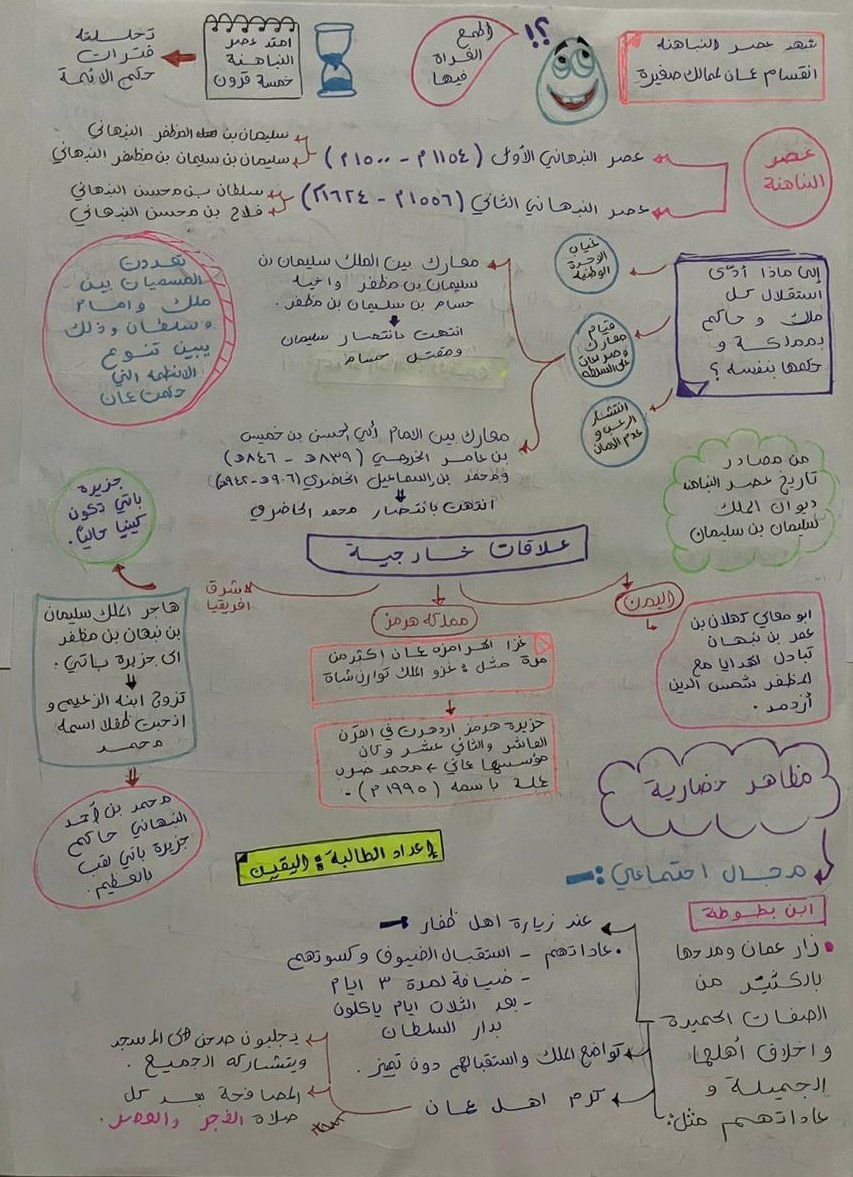 شهد عصر النباهنة
انقسام عمان لممالك صغيرة
؟!
اطمع
الغزاة
فيها
امتد عصر
النباهنة
خمسة قرون
تخللته
فترات
حكم الائمة
عصر
النباهنة
عصر النبهاني الأول (١١٥٤م - ١٥٠٠م)
سليمان بن المظفر النبهاني
سليمان بن سليمان بن مظفر النبهاني
عصر النبهاني الثاني (١٥٥٦م - ١٦٢٤م)
سلطان بن محسن النبهاني
فلاح بن محسن النبهاني
إلى ماذا أدى
استقلال كل
ملك و حاكم
بمملكة و
حكمها بنفسه ؟
غياب
الوحدة
الوطنية
قيام
معارك
وصراعات
على السلطة
انتشار
الرعب و
عدم الامان
معارك بين الملك سليمان بن
سليمان بن مظفر واخيه
حسام بن سليمان بن مظفر .
انتهت بانتصار سليمان
ومقتل حسام
معارك بين الامام أبي الحسن بن خميس
بن عامر الخروصي (٨٣٩هـ - ٨٤٦هـ)
ومحمد بن إسماعيل الحاضري (٩٠٦هـ-٩٤٢هـ)
انتهت بانتصار محمد الحاضري
تعددت
المسميات بين
ملك وامام
وسلطان وذلك
يبين تنوع
الانظمة التي
حكمت عمان
من مصادر
تاريخ عصر النباهنة
ديوان الملك
سليمان بن سليمان
علاقات خارجية
اليمن
ابو معالي كهلان بن
عمر بن نبهان
تبادل الهدايا مع
المظفر شمس الدين
أزدمر .
مملكة هرمز
غزا الهرامزة عمان اكثر من
مرة مثل : غزو الملك توران شاة
جزيرة هرمز ازدهرت في القرن
العاشر والثاني عشر وكان
مؤسسها عماني محمد ضرب
عملة باسمه (١٩٩٥م) .
شرق
افريقيا
هاجر الملك سليمان
بن نبهان بن مظفر
الى جزيرة باتي .
تزوج ابنة الزعيم و
انجبت طفلا اسمه
محمد
جزيرة
باتي تكون
كينيا حالياً .
محمد بن أحمد
النبهاني حاكم
جزيرة باتي لقب
بالعظيم .
إعداد الطالبة : اليقين
مظاهر حضارية
مجال اجتماعي :-
ابن بطوطة
زار عمان ومدحها
بالكثير من
الصفات الحميدة
واخلاق أهلها
الجميلة و
عاداتهم مثل :
عند زيارة اهل ظفار
. عاداتهم - استقبال الضيوف وكسوتهم
- ضيافة لمدة ٣ ايام
- بعد الثلاث ايام ياكلون
بدار السلطان
تواضع الملك واستقبالهم دون تميز .
كرم اهل عمان
يجلبون صحن الى المسجد
ويتشاركه الجميع .
المصافحة بعد كل
صلاة الفجر والعصر .